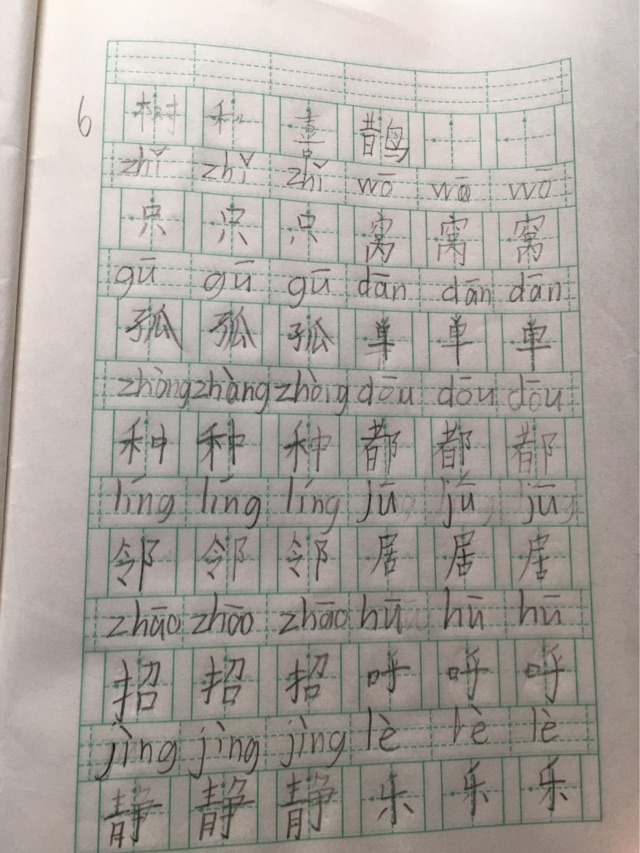 6 树 和 喜 鹊
zhǐ zhǐ zhǐ wō wō wō
只 只 只 窝 窝 窝
gū gū gū dān dān dān
孤 孤 孤 单 单 单
zhòng zhàng zhòng dōu dōu dōu
种 种 种 都 都 都
líng líng líng jū jū jū
邻 邻 邻 居 居 居
zhāo zhāo zhāo hū hū hū
招 招 招 呼 呼 呼
jìng jìng jìng lè lè lè
静 静 静 乐 乐 乐